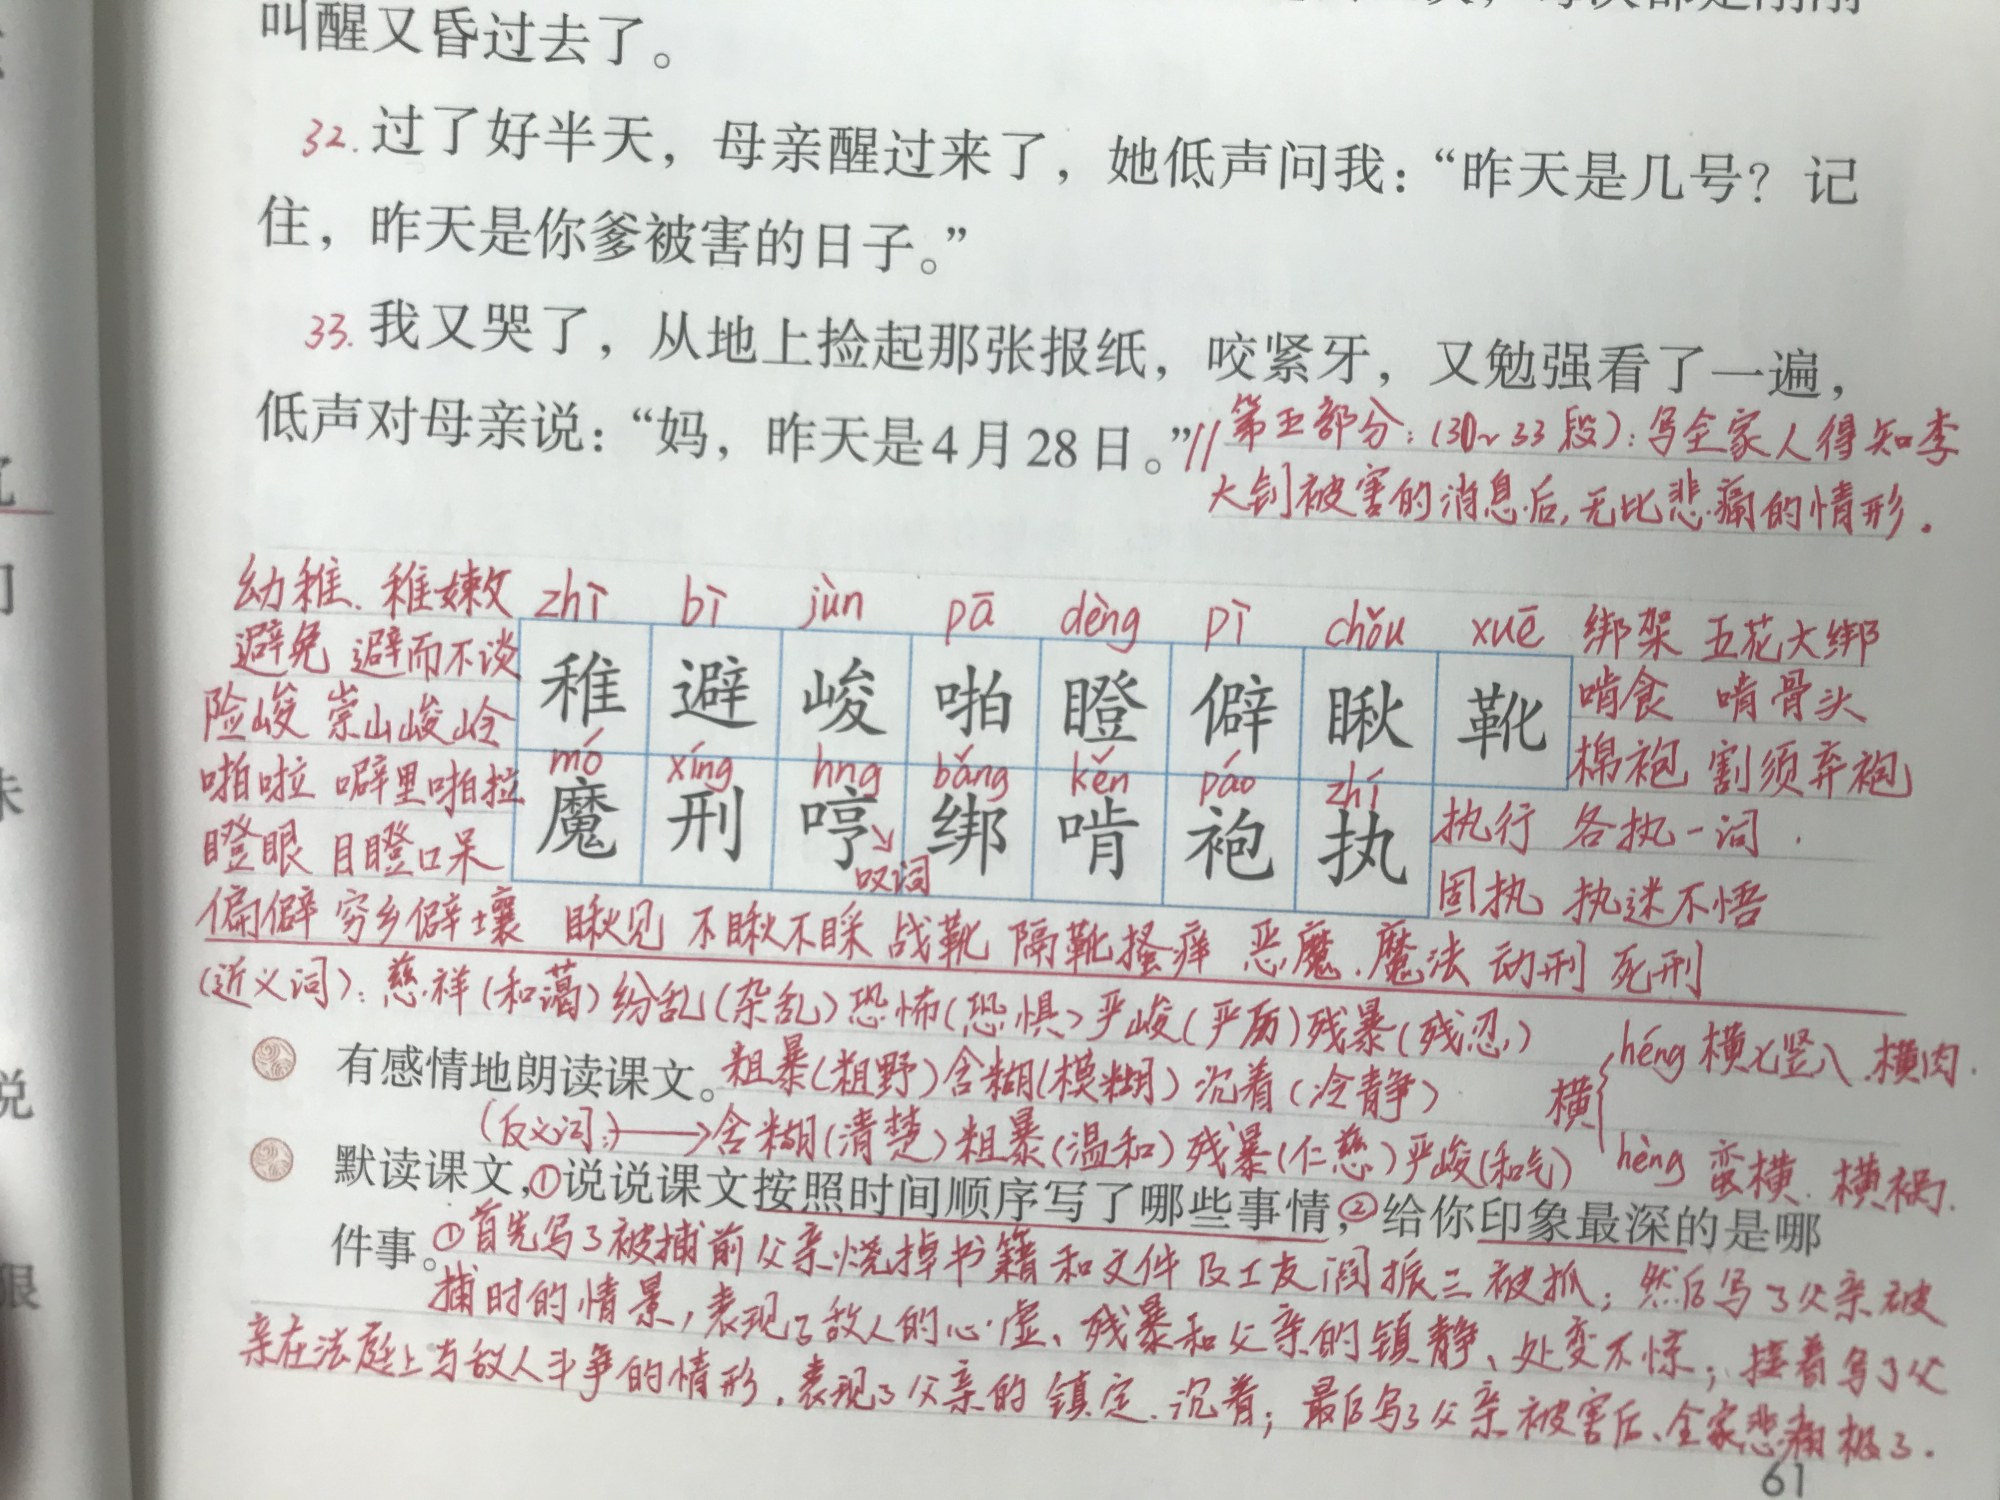 叫醒又昏过去了。
32.过了好半天，母亲醒过来了，她低声问我：“昨天是几号？记
住，昨天是你爹被害的日子。”
33.我又哭了，从地上捡起那张报纸，咬紧牙，又勉强看了一遍，
低声对母亲说：“妈，昨天是4月28日。”//第五部分：(30~33段)：写全家人得知李
大钊被害的消息后，无比悲痛的情形.
幼稚、稚嫩 zhì bì jùn pā dèng pì chǒu xuē 绑架 五花大绑
避免 避而不谈 稚 避 峻 啪 瞪 僻 瞅 靴 啃食 啃骨头
险峻 崇山峻岭
啪啦 噼里啪拉 mó xíng hng bǎng kěn páo zhí 棉袍 割须弃袍
魔 刑 哼 绑 啃 袍 执 执行 各执一词.
瞪眼 目瞪口呆 叹词 固执 执迷不悟
偏僻 穷乡僻壤 瞅见 不瞅不睬 战靴 隔靴搔痒 恶魔、魔法 动刑 死刑
(近义词)：慈祥(和蔼)纷乱(杂乱)恐怖(恐惧)严峻(严厉)残暴(残忍)
有感情地朗读课文。粗暴(粗野)含糊(模糊)沉着(冷静) 横 héng 横七竖八、横肉.
(反义词:)→含糊(清楚)粗暴(温和)残暴(仁慈)严峻(和气) hèng 蛮横、横祸.
默读课文，①说说课文按照时间顺序写了哪些事情，②给你印象最深的是哪
件事。①首先写了被捕前父亲烧掉书籍和文件及工友阎振三被抓；然后写了父亲被
捕时的情景，表现了敌人的心虚、残暴和父亲的镇静、处变不惊；接着写了父
亲在法庭上与敌人斗争的情形，表现了父亲的镇定、沉着；最后写了父亲被害后、全家悲痛极了.
61